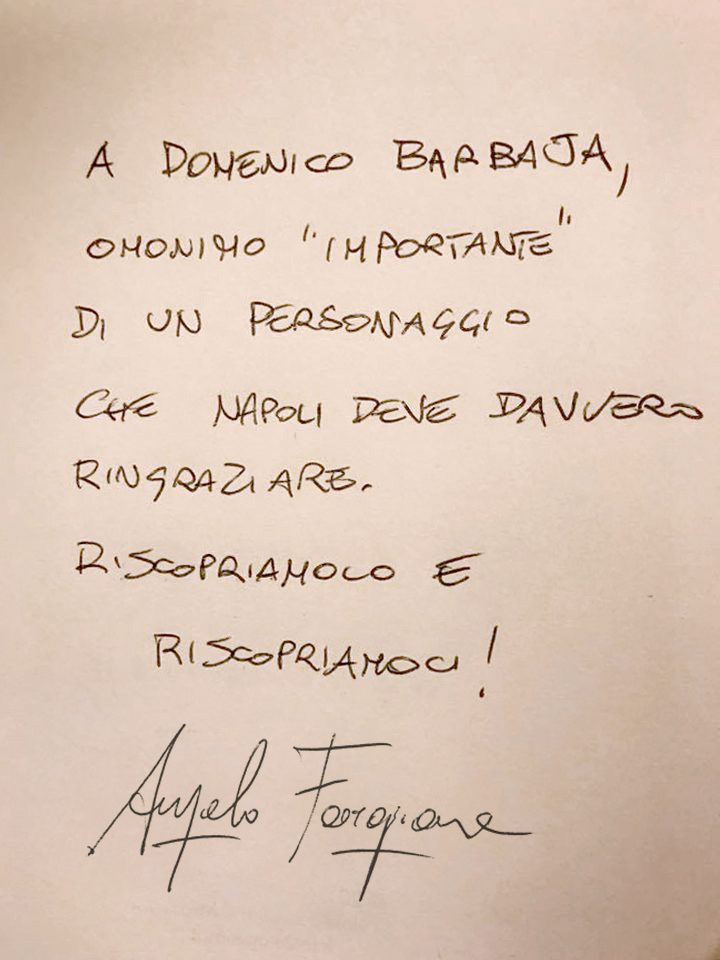 A DOMENICO BARBAJA,
OMONIMO "IMPORTANTE"
DI UN PERSONAGGIO
CHE NAPOLI DEVE DAVVERO
RINGRAZIARE.
RISCOPRIAMOLO E
RISCOPRIAMOCI!
Angelo Forgione